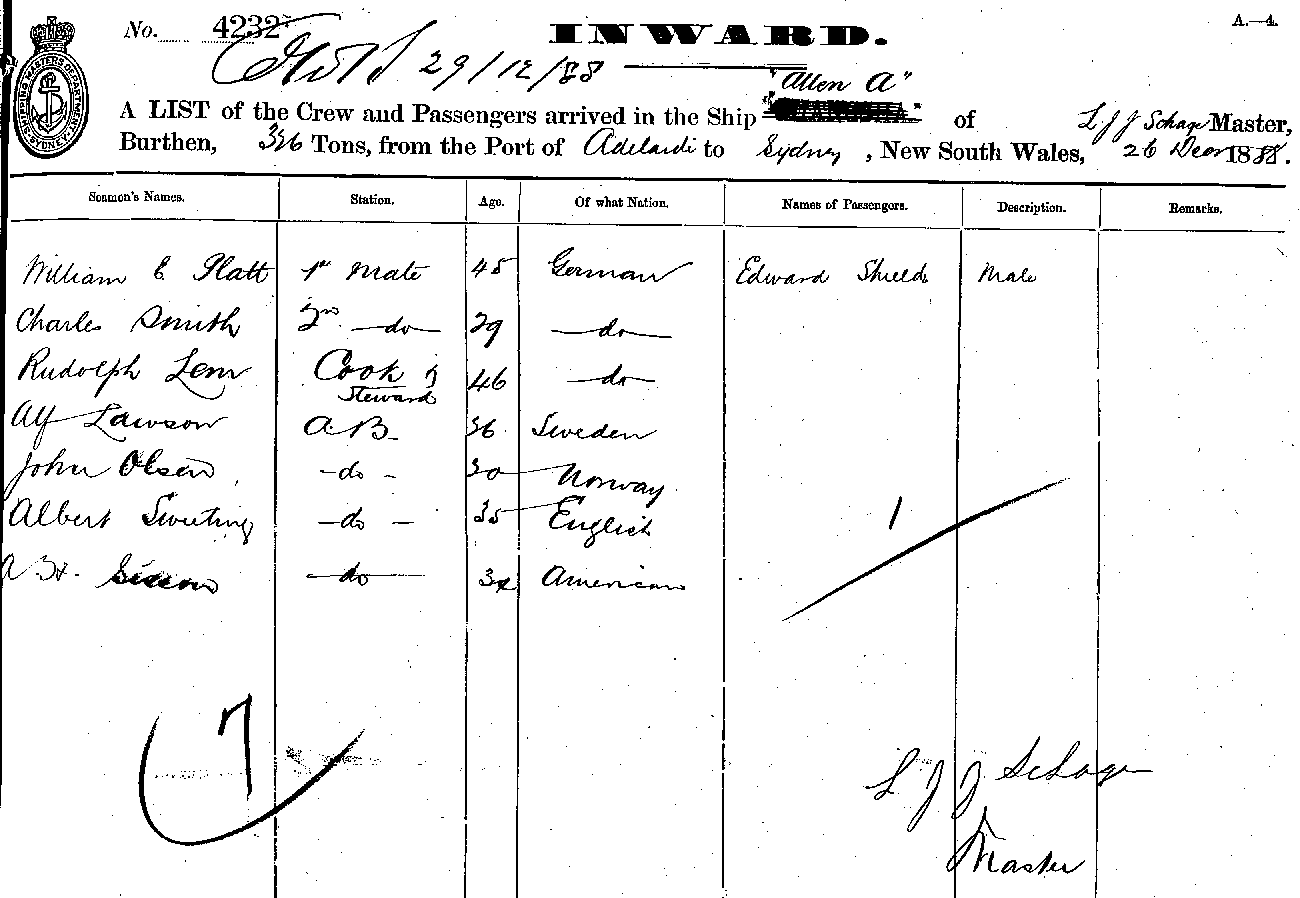 No. 4232
INWARD.
A.—4.
29/12/88
"Allen A"
A LIST of the Crew and Passengers arrived in the Ship of L J J Schage Master,
Burthen, 326 Tons, from the Port of Adelaide to Sydney, New South Wales, 26 Decr 1888.
Seamen's Names. Station. Age. Of what Nation. Names of Passengers. Description. Remarks.
William C Platt 1st Mate 45 German Edward Shields Male
Charles Smith 2nd —do— 29 —do—
Rudolph Lem Cook & 46 —do—
Steward
Alf Lawson A.B. 36 Sweden
John Olsen —do— 30 Norway
Albert Sweeting —do— 35 English
—do— American
1
7
L J J Schage
Master
SHIPPING MASTERS DEPARTMENT SYDNEY